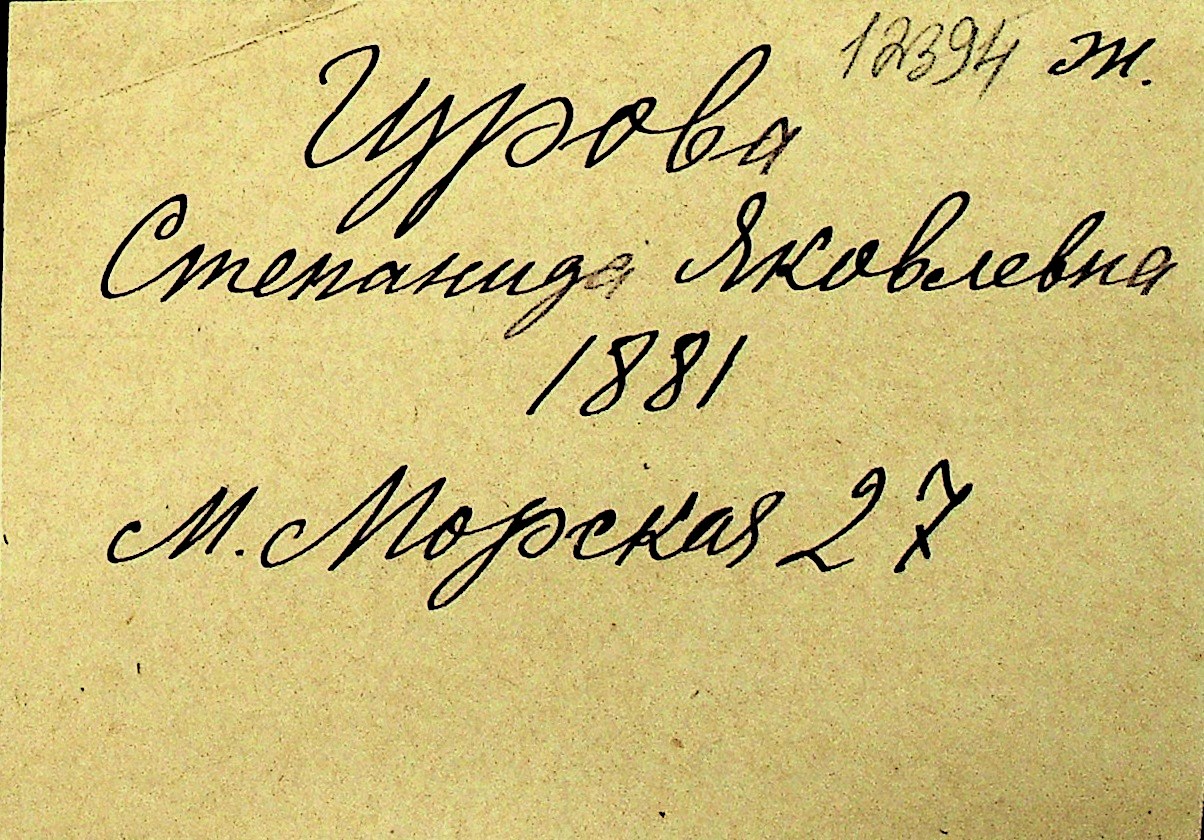 12394 ж.
Гурова
Степанида Яковлевна
1881
М. Морская 27